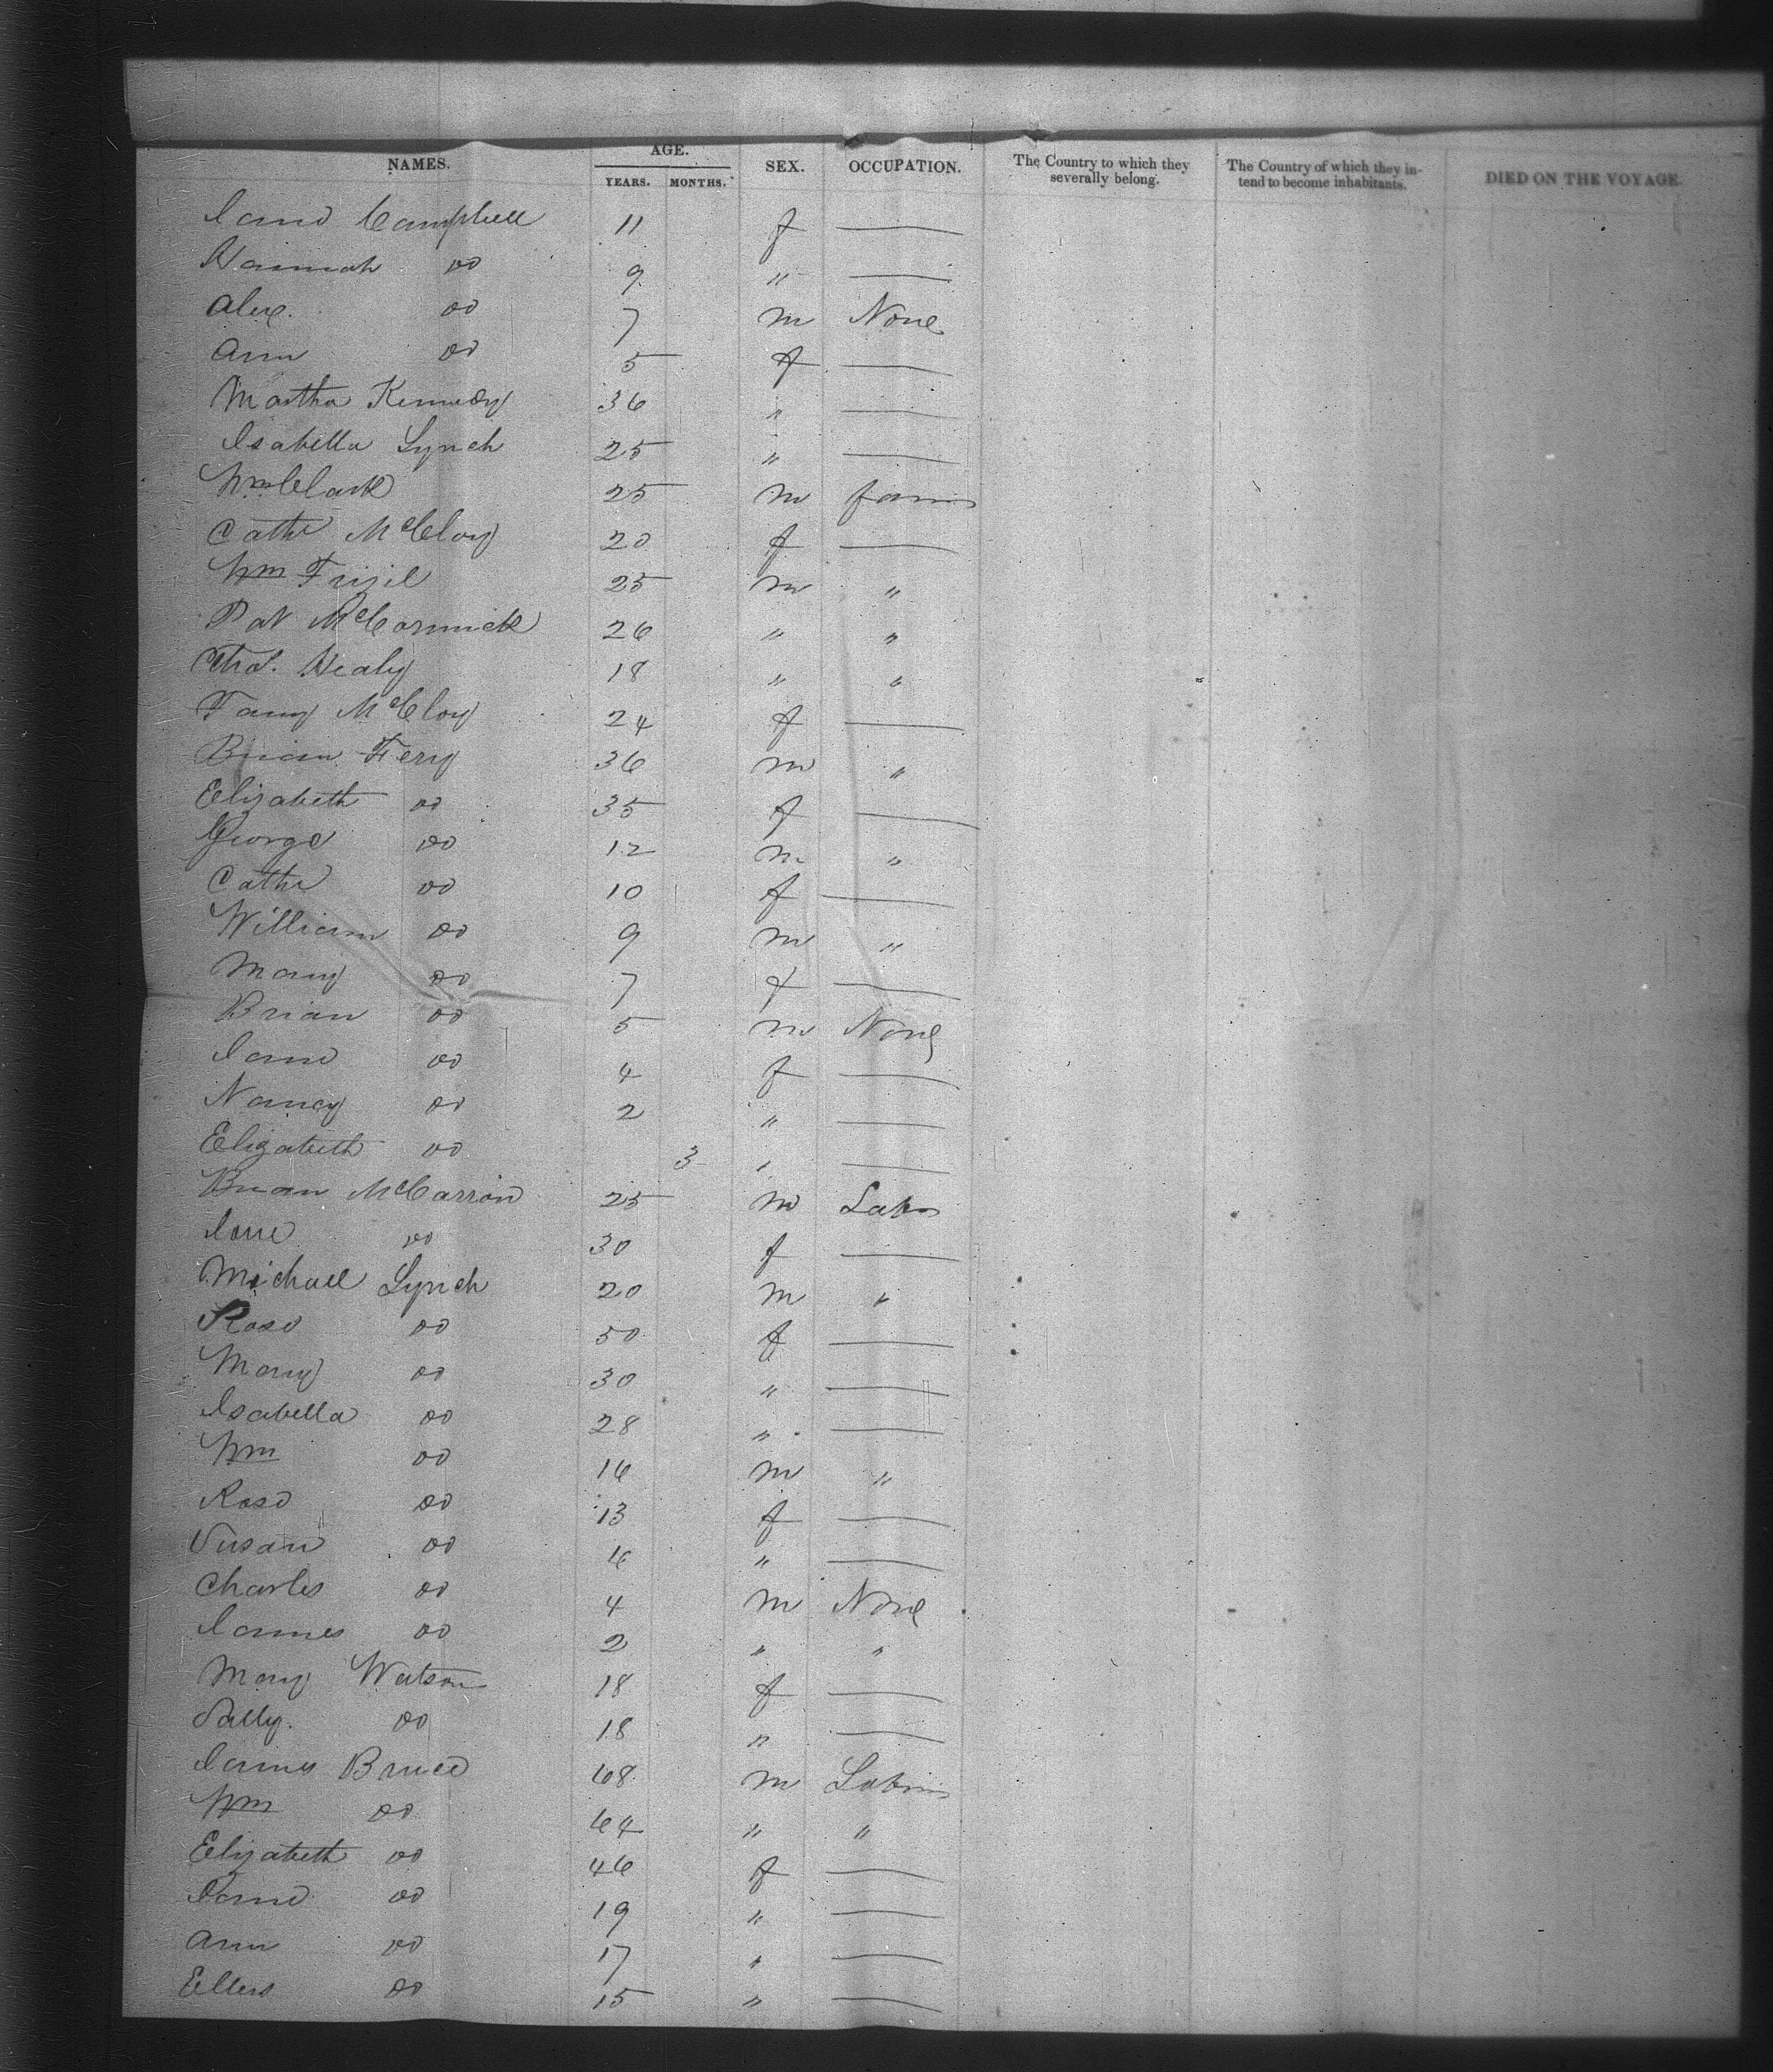 NAMES. AGE. SEX. OCCUPATION. The Country to which they severally belong. The Country of which they intend to become inhabitants. DIED ON THE VOYAGE.
YEARS. MONTHS.
Jane Campbell 11 f —
Hannah do 9 " —
Alex. do 7 m None
Ann do 5 f —
Martha Kennedy 36 " —
Isabella Lynch 25 " —
Wm Clark 25 m farm
Cathe McCloy 20 f —
Wm Frizil 25 m "
Pat McCormick 26 " "
Tho<sup>s</sup>. Healy 18 " "
Fanny McCloy 24 f —
Brian Fery 36 m "
Elizabeth do 35 f —
George do 12 m "
Cathe do 10 f —
William do 9 m "
Mary do 7 f —
Brian do 5 m None
Jane do 4 f —
Nancy do 2 " —
Elizabeth do 3 " —
Brian McCarron 25 m Labr
Jane do 30 f —
Michael Lynch 20 m "
Rose do 50 f —
Mary do 30 " —
Isabella do 28 " —
Wm do 16 m "
Rose do 13 f —
Susan do 6 " —
Charles do 4 m None
James do 2 " "
Mary Watson 18 f —
Sally. do 18 " —
James Bruce 68 m Labr
Wm do 64 " "
Elizabeth do 46 f —
Jane do 19 " —
Ann do 17 " —
Ellen do 15 " —